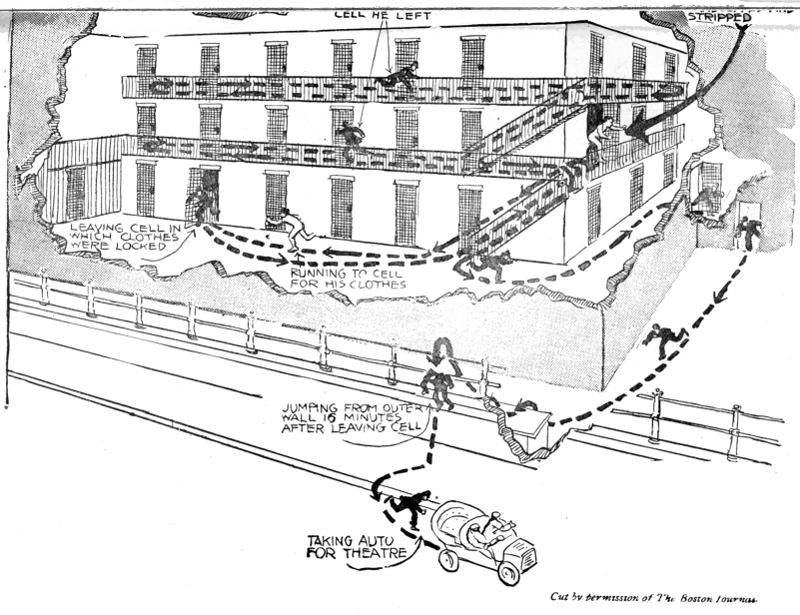 CELL HE LEFT
STRIPPED
LEAVING CELL IN
WHICH CLOTHES
WERE LOCKED
RUNNING TO CELL
FOR HIS CLOTHES
JUMPING FROM OUTER
WALL 16 MINUTES
AFTER LEAVING CELL
TAKING AUTO
FOR THEATRE
Cut by permission of The Boston Journal.